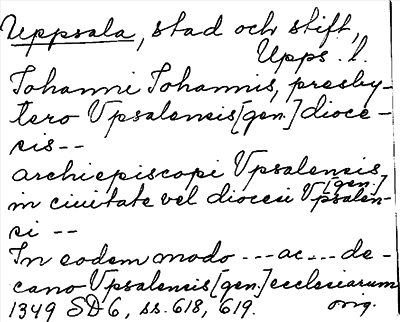 Uppsala, stad och stift,
Upps. l.
Johanni Johannis, presby-
tero Vpsalensis [gen.] dioce-
sis--
archiepiscopi Vpsalensis
[gen.]
in ciuitate vel diocesi Vpsalen-
si --
In eodem modo --- ac --- de-
cano Vpsalensis [gen.] ecclesiarum
1349 SD 6, ss. 618, 619. orig.